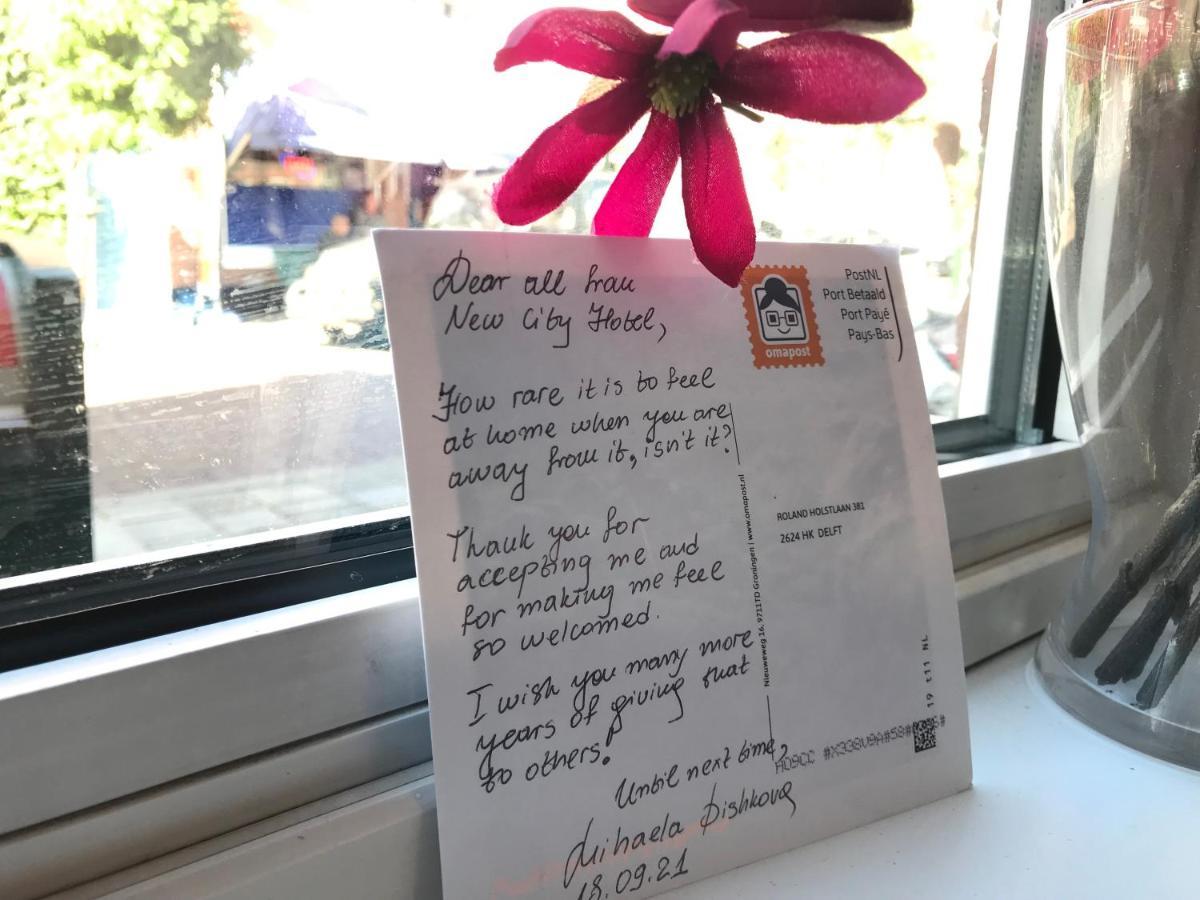 Dear all from
New City Hotel,
How rare it is to feel
at home when you are
away from it, isn't it?
Thank you for
accepting me and
for making me feel
so welcomed.
I wish you many more
years of giving that
to others.
Until next time,
Mihaela Dishkova
18.09.21
omapost
PostNL
Port Betaald
Port Payé
Pays-Bas
Nieuweweg 16, 9711TD Groningen | www.omapost.nl
ROLAND HOLSTLAAN 381
2624 HK DELFT
19 t11 NL